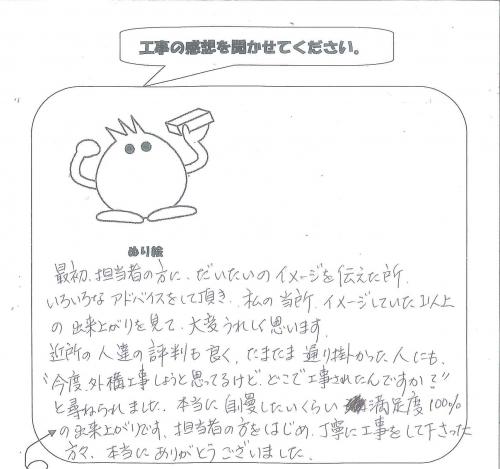 工事の感想を聞かせてください。
ぬり絵
最初、担当者の方に、だいたいのイメージを伝えた所、
いろいろなアドバイスをして頂き、私の当所、イメージしていた以上
の出来上がりを見て、大変うれしく思います。
近所の人達の評判も良く、たまたま通り掛かった人にも、
"今度、外構工事しようと思ってるけど、どこで工事されたんですか?"
と尋ねられました。本当に自慢したいくらい満足度100%
の出来上がりです。担当者の方をはじめ、丁寧に工事をして下さった
方々、本当にありがとうございました。